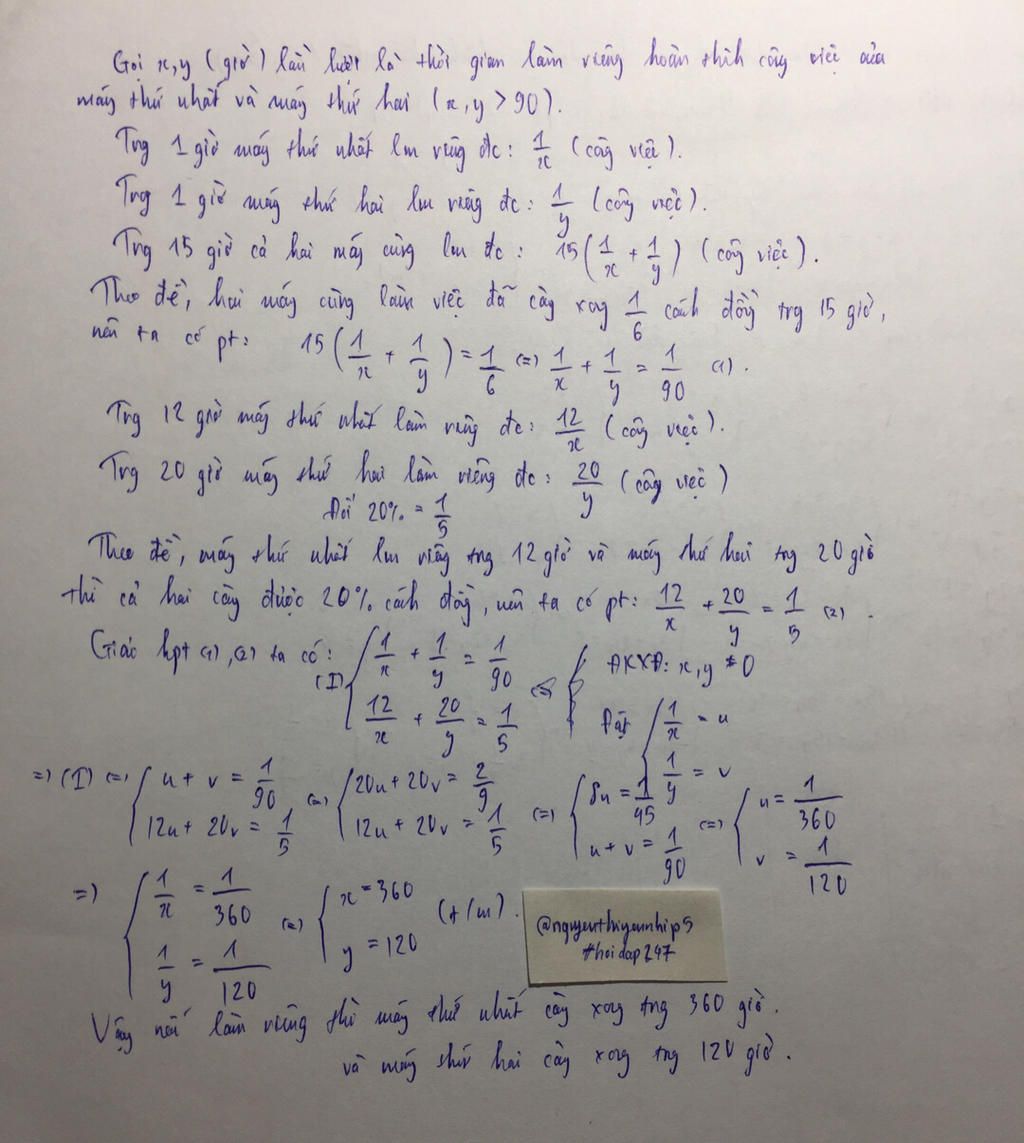 Gọi x, y (giờ) lần lượt là thời gian làm riêng hoàn thành công việc của
máy thứ nhất và máy thứ hai (x, y > 90).
Trg 1 giờ máy thứ nhất lm riêng đc: 1/x (công việc).
Trg 1 giờ máy thứ hai lm riêng đc: 1/y (công việc).
Trg 15 giờ cả hai máy cùng lm đc: 15(1/x + 1/y) (công việc).
Theo đề, hai máy cùng làm việc đã cày xong 1/6 cánh đồng trg 15 giờ,
nên ta có pt: 15(1/x + 1/y) = 1/6 (=) 1/x + 1/y = 1/90 (1).
Trg 12 giờ máy thứ nhất làm riêng đc: 12/x (công việc).
Trg 20 giờ máy thứ hai làm riêng đc: 20/y (công việc)
Đổi 20% = 1/5
Theo đề, máy thứ nhất lm riêng trg 12 giờ và máy thứ hai trg 20 giờ
thì cả hai cày được 20% cánh đồng, nên ta có pt: 12/x + 20/y = 1/5 (2).
Giải hpt (1), (2) ta có: (I) { 1/x + 1/y = 1/90
12/x + 20/y = 1/5
ĐKXĐ: x, y ≠ 0
Đặt { 1/x = u
1/y = v
=) (I) (=) { u + v = 1/90 (=) { 20u + 20v = 2/9 (=) { 8u = 1/45 (=) { u = 1/360
12u + 20v = 1/5 12u + 20v = 1/5 u + v = 1/90 v = 1/120
=) { 1/x = 1/360 (=) { x = 360 (t/m).
1/y = 1/120 y = 120
@nguyenthiyennhip5
#hoidap247
Vậy nếu làm riêng thì máy thứ nhất cày xong trg 360 giờ.
và máy thứ hai cày xong trg 120 giờ.